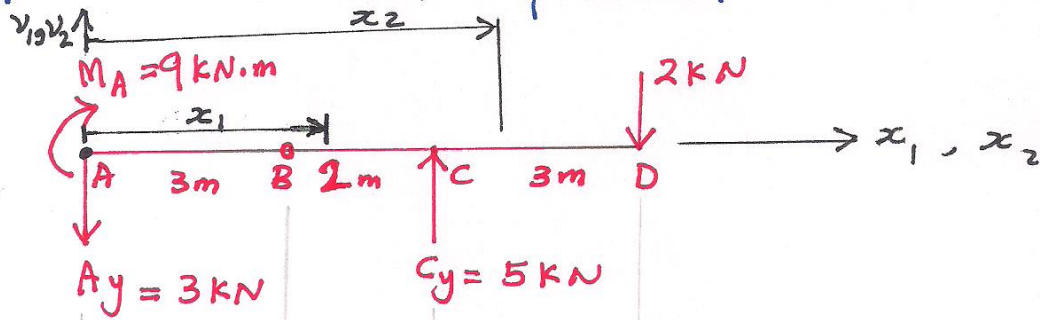 v₁, v₂
x₂
M_A = 9 kN.m
2 kN
x₁
x₁, x₂
A 3m B 2m C 3m D
Ay = 3 kN
Cy = 5 kN